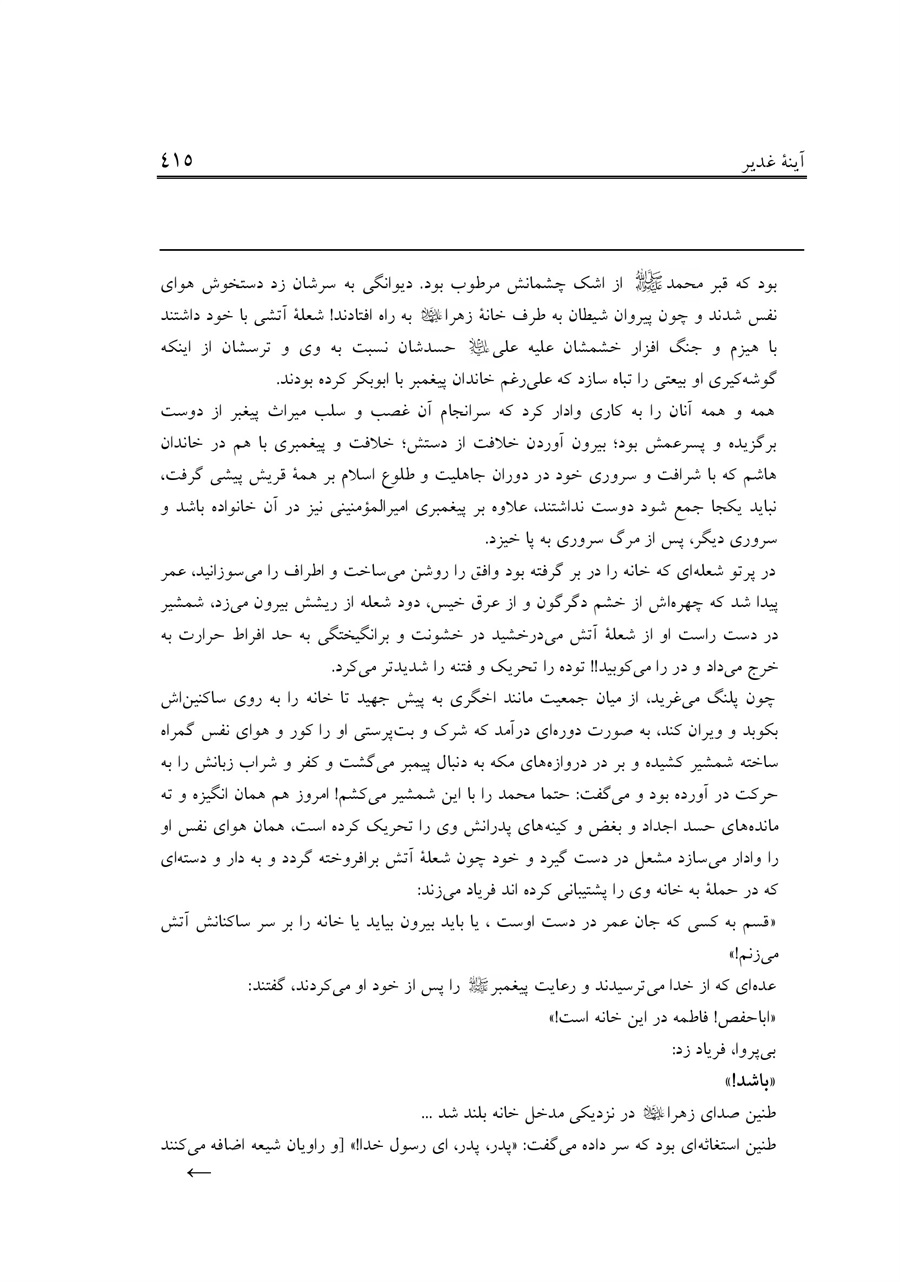 آینهٔ غدیر ٤١٥
بود که قبر محمدﷺ از اشک چشمانش مرطوب بود. دیوانگی به سرشان زد دستخوش هوای
نفس شدند و چون پیروان شیطان به طرف خانهٔ زهرا به راه افتادند! شعلهٔ آتشی با خود داشتند
با هیزم و جنگ افزار خشمشان علیه علی حسدشان نسبت به وی و ترسشان از اینکه
گوشه‌گیری او بیعتی را تباه سازد که علی‌رغم خاندان پیغمبر با ابوبکر کرده بودند.
همه و همه آنان را به کاری وادار کرد که سرانجام آن غصب و سلب میراث پیغبر از دوست
برگزیده و پسرعمش بود؛ بیرون آوردن خلافت از دستش؛ خلافت و پیغمبری با هم در خاندان
هاشم که با شرافت و سروری خود در دوران جاهلیت و طلوع اسلام بر همهٔ قریش پیشی گرفت،
نباید یکجا جمع شود دوست نداشتند، علاوه بر پیغمبری امیرالمؤمنینی نیز در آن خانواده باشد و
سروری دیگر، پس از مرگ سروری به پا خیزد.
در پرتو شعله‌ای که خانه را در بر گرفته بود وافق را روشن می‌ساخت و اطراف را می‌سوزانید، عمر
پیدا شد که چهره‌اش از خشم دگرگون و از عرق خیس، دود شعله از ریشش بیرون می‌زد، شمشیر
در دست راست او از شعلهٔ آتش می‌درخشید در خشونت و برانگیختگی به حد افراط حرارت به
خرج می‌داد و در را می‌کوبید!! توده را تحریک و فتنه را شدیدتر می‌کرد.
چون پلنگ می‌غرید، از میان جمعیت مانند اخگری به پیش جهید تا خانه را به روی ساکنین‌اش
بکوبد و ویران کند، به صورت دوره‌ای درآمد که شرک و بت‌پرستی او را کور و هوای نفس گمراه
ساخته شمشیر کشیده و بر در دروازه‌های مکه به دنبال پیمبر می‌گشت و کفر و شراب زبانش را به
حرکت در آورده بود و می‌گفت: حتما محمد را با این شمشیر می‌کشم! امروز هم همان انگیزه و ته
مانده‌های حسد اجداد و بغض و کینه‌های پدرانش وی را تحریک کرده است، همان هوای نفس او
را وادار می‌سازد مشعل در دست گیرد و خود چون شعلهٔ آتش برافروخته گردد و به دار و دسته‌ای
که در حملهٔ به خانه وی را پشتیبانی کرده اند فریاد می‌زند:
«قسم به کسی که جان عمر در دست اوست ، یا باید بیرون بیاید یا خانه را بر سر ساکنانش آتش
می‌زنم!»
عده‌ای که از خدا می‌ترسیدند و رعایت پیغمبرﷺ را پس از خود او می‌کردند، گفتند:
«اباحفص! فاطمه در این خانه است!»
بی‌پروا، فریاد زد:
«باشد!»
طنین صدای زهرا در نزدیکی مدخل خانه بلند شد ...
طنین استغاثه‌ای بود که سر داده می‌گفت: «پدر، پدر، ای رسول خدا!» [و راویان شیعه اضافه می‌کنند
←